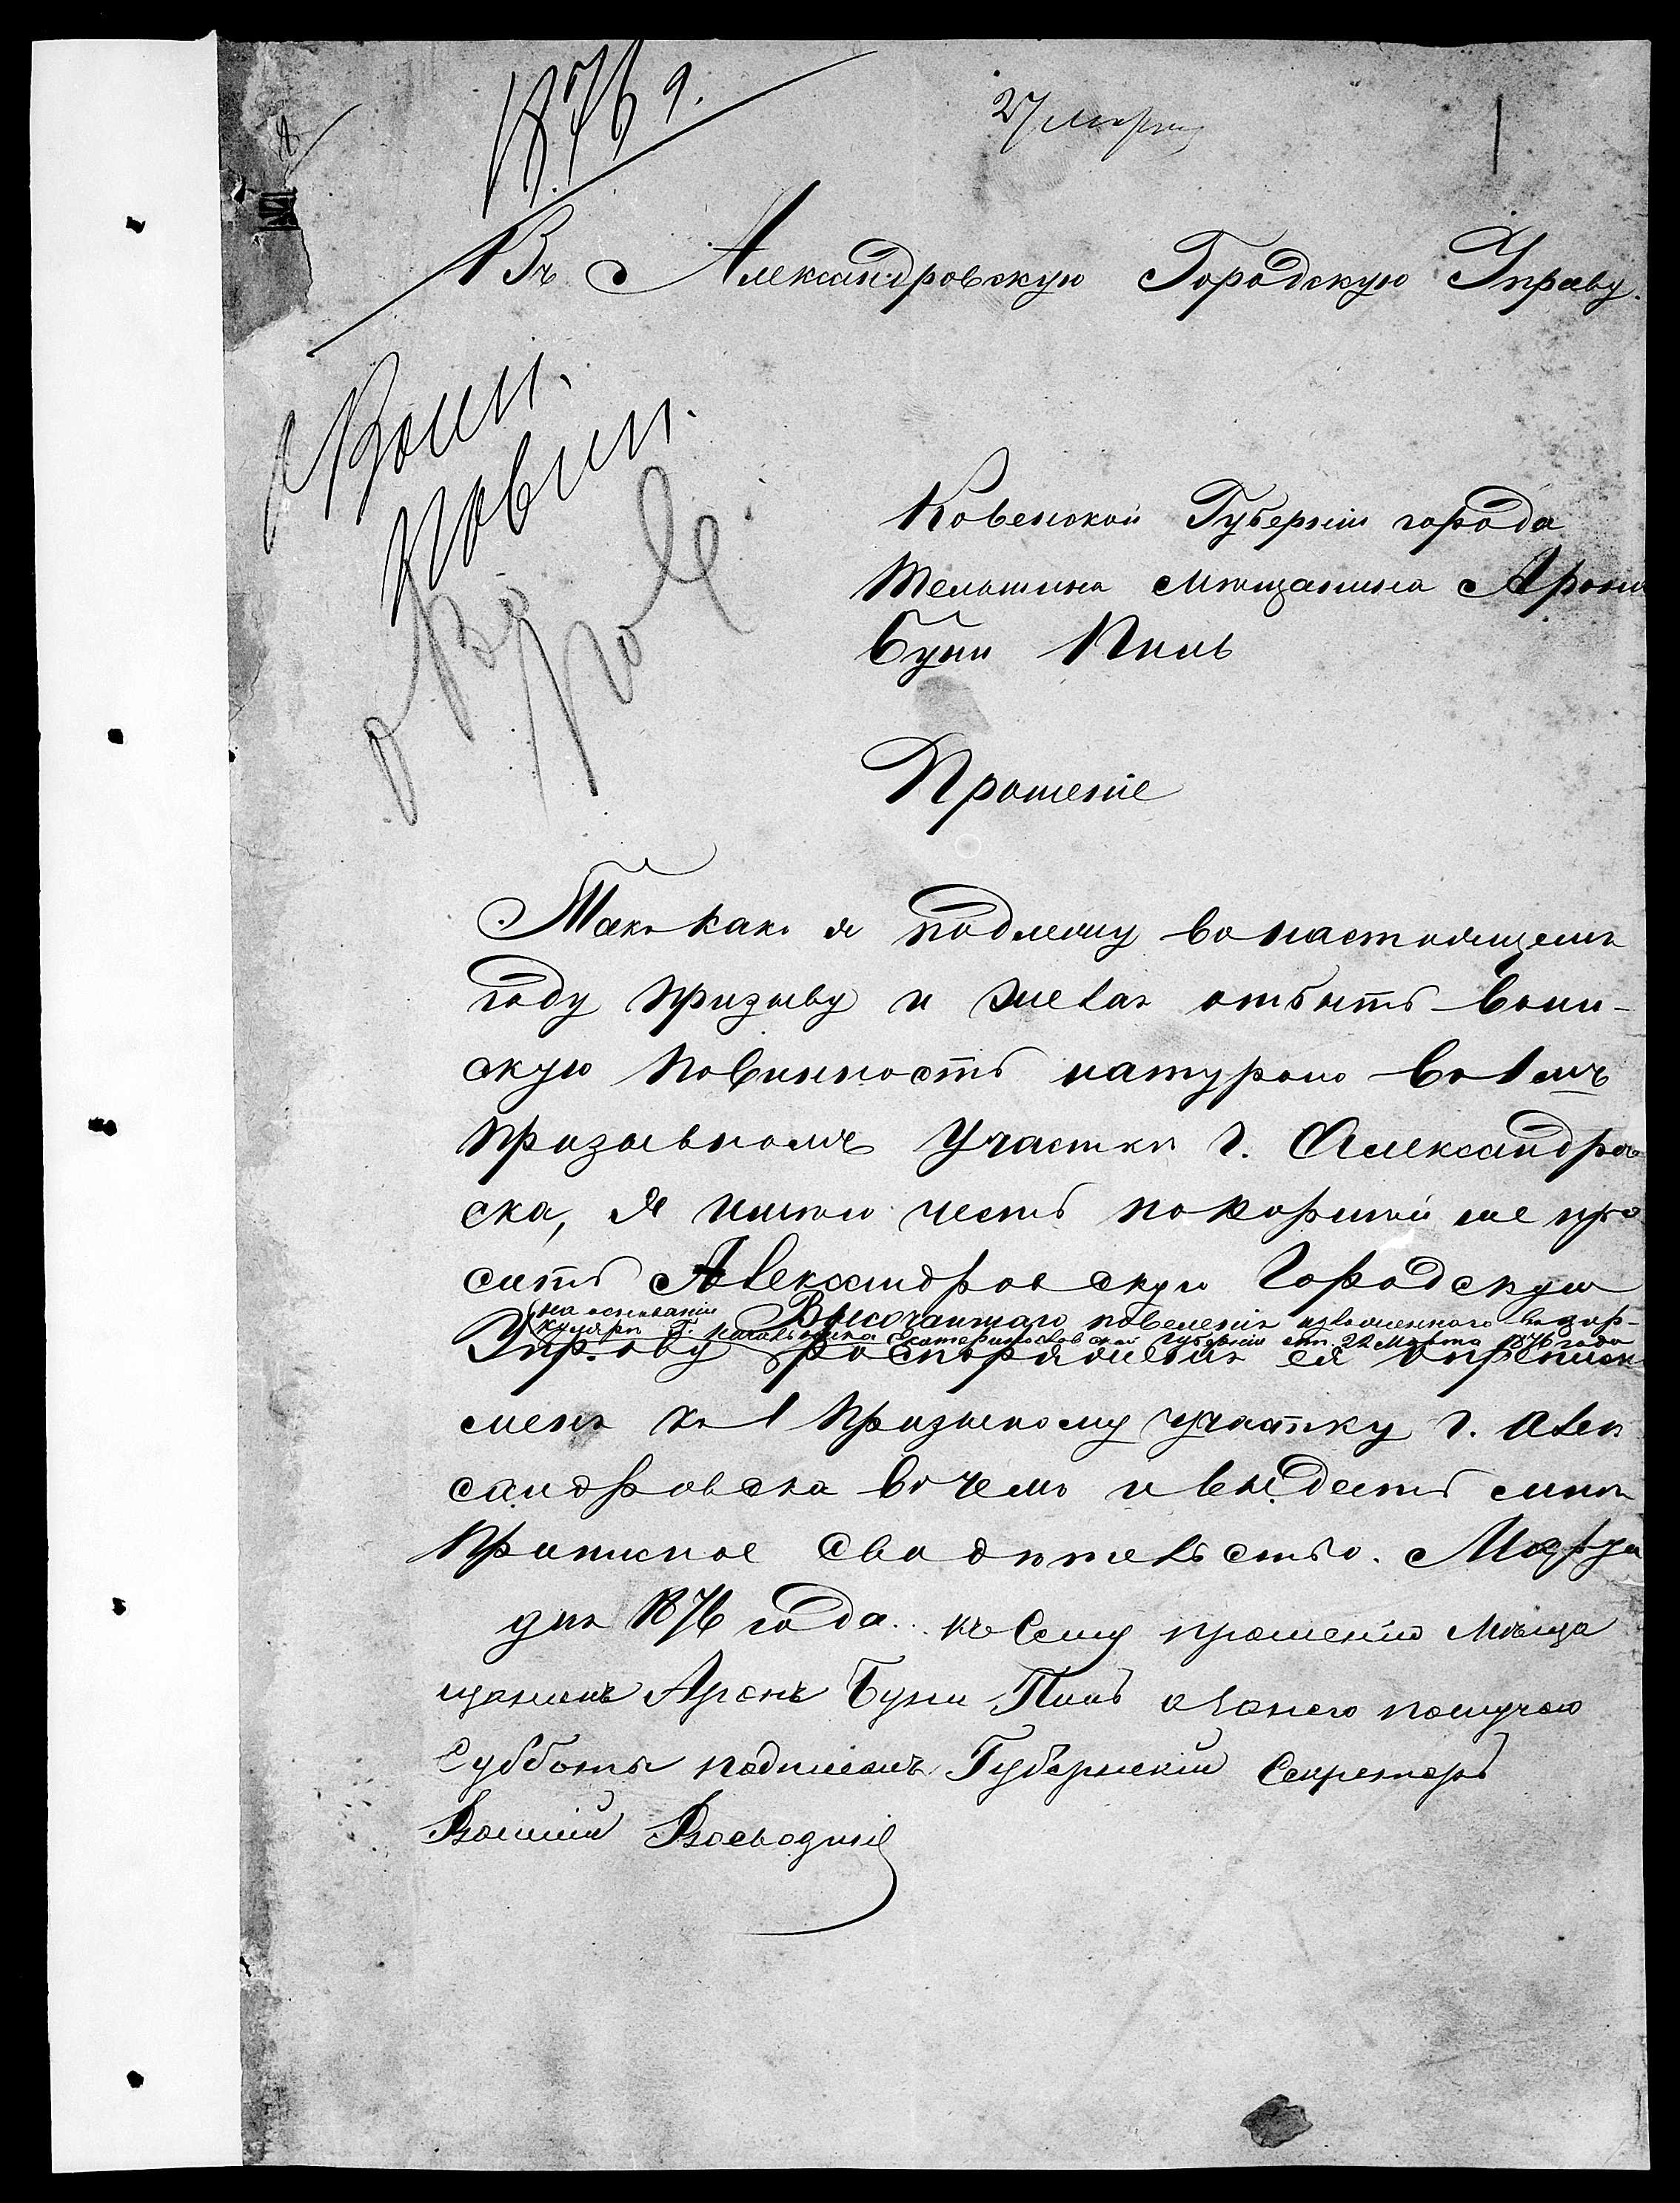 1876 г.
27 Марта
1
Въ Александровскую Городскую Управу.
О Воин.
повин.
Ковенской Губерніи города
Тельшина мѣщанина Арона
Буни Пиль
Прошеніе
Такъ какъ я подлежу въ настоящемъ
году призыву и желая отбыть воин-
скую повинность натурою въ 1 мъ
призывномъ участкѣ г. Александров-
ска, я имѣю честь покорнѣйше про
сить Александровскую Городскую
на основаніи Высочайшаго повеленія изложенного въ цир-
куляре Г. начальника Екатеринославской Губерніи отъ 22 Марта 1876 года
Управу распоряженія ея о приписке
меня къ 1 призывному участку г. Алек
сандровска въ чемъ и выдать мнѣ
приписное свидѣтельство. Марта
дня 1876 года. къ сему прошенію Мѣща
щанинъ Аронъ Буни Пиль а за него по случаю
Субботы подписалъ Губернскій Секретарь